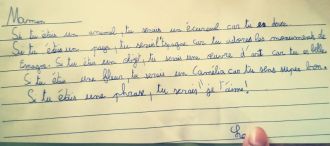 Maman
Si tu étais un animal, tu serais un écureuil car tu es douce.
Si tu étais un pays, tu serais l'Espagne car tu adores les monuments de
Espagne. Si tu étais un objet, tu serais une œuvre d'art car tu es belle
Si tu étais une fleur, tu serais un Camélia car tu sens super bon.
Si tu étais une phrase, tu serais "je t'aime!